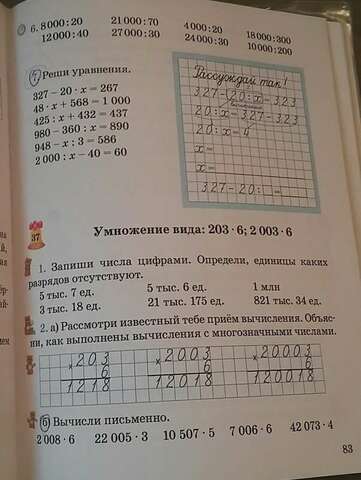 6. 8 000 : 20 21 000 : 70 4 000 : 20 18 000 : 300
12 000 : 40 27 000 : 30 24 000 : 30 10 000 : 200
7. Реши уравнения.
327 – 20 · x = 267
48 · x + 568 = 1 000
425 : x + 432 = 437
980 – 360 : x = 890
948 – x : 3 = 586
2 000 : x – 40 = 60
Рассуждай так!
327 – 20 : x = 323
20 : x = 327 – 323
20 : x = 4
x =
x =
327 – 20 : =
37
Умножение вида: 203 · 6; 2 003 · 6
1. Запиши числа цифрами. Определи, единицы каких
разрядов отсутствуют.
5 тыс. 7 ед. 5 тыс. 6 ед. 1 млн
3 тыс. 18 ед. 21 тыс. 175 ед. 821 тыс. 34 ед.
2. а) Рассмотри известный тебе приём вычисления. Объяс-
ни, как выполнены вычисления с многозначными числами.
× 203 × 2003 × 20003
6 6 6
1218 12018 120018
б) Вычисли письменно.
2 008 · 6 22 005 · 3 10 507 · 5 7 006 · 6 42 073 · 4
83